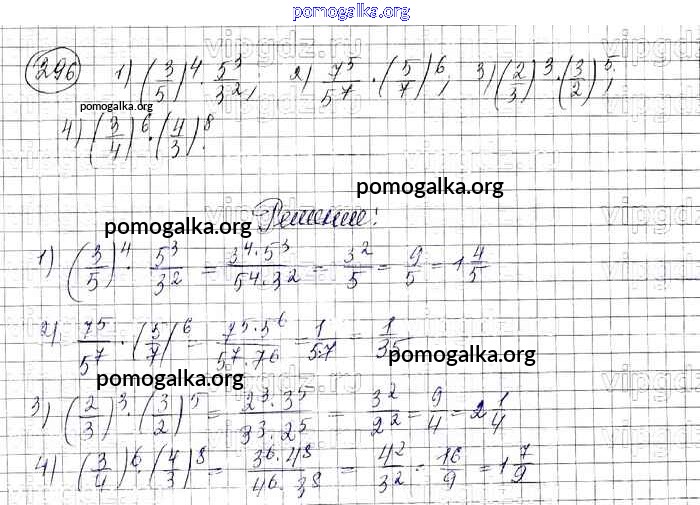 pomogalka.org
vipgdz.ru
296 1) (3/5)^4 · 5^3/3^2; 2) 7^5/5^7 · (5/7)^6; 3) (2/3)^3 · (3/2)^5;
pomogalka.org
4) (3/4)^6 · (4/3)^8.
pomogalka.org
pomogalka.org
Решение:
1) (3/5)^4 · 5^3/3^2 = 3^4·5^3/5^4·3^2 = 3^2/5 = 9/5 = 1 4/5
2) 7^5/5^7 · (5/7)^6 = 7^5·5^6/5^7·7^6 = 1/5·7 = 1/35
pomogalka.org
pomogalka.org
3) (2/3)^3 · (3/2)^5 = 2^3·3^5/3^3·2^5 = 3^2/2^2 = 9/4 = 2 1/4
4) (3/4)^6 · (4/3)^8 = 3^6·4^8/4^6·3^8 = 4^2/3^2 = 16/9 = 1 7/9